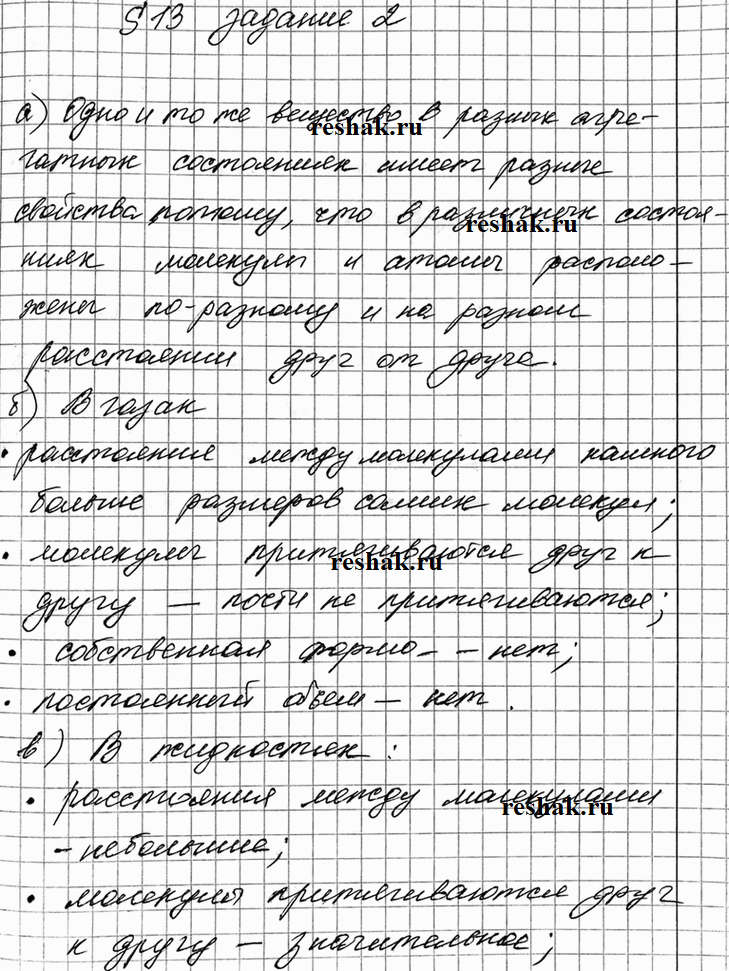 §13 задание 2
а) Одно и то же вещество в разных агре-
гатных состояниях имеет разные
reshak.ru
свойства потому, что в различных состоя-
reshak.ru
ниях молекулы и атомы располо-
жены по-разному и на разном
расстоянии друг от друга.
б) В газах
• расстояния между молекулами намного
больше размеров самих молекул;
• молекулы притягиваются друг к
reshak.ru
другу — пости не притягиваются;
• собственная форма - - нет;
• постоянный объем — нет.
в) В жидкостях:
• расстояния между молекулами
reshak.ru
- небольшие;
• молекулы притягиваются друг
к другу — значительное;